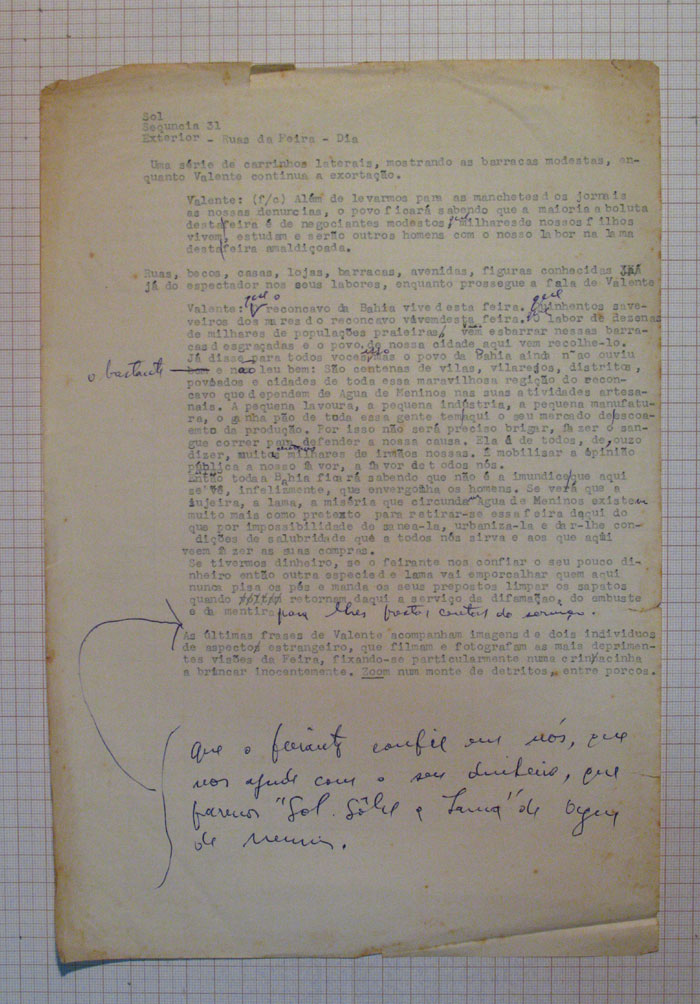 Sol
Sequncia 31
Exterior - Ruas da Feira - Dia
Uma série de carrinhos laterais, mostrando as barracas modestas, en-
quanto Valente continua a exortação.
Valente: (f/c) Além de levarmos para as manchetesd os jornais
as nossas denuncias, o povo ficará sabendo que a maioria a boluta
destafeira é de negociantes modestos, que milharesde nossos filhos
vivem, estudam e serão outros homens com o nosso labor na lama
destafeira amaldiçoada.
Ruas, becos, casas, lojas, barracas, avenidas, figuras conhecidas
já do espectador nos seus labores, enquanto prossegue a fala de Valente
Valente: que o reconcavo da Bahia vive desta feira. que quinhentos save-
veiros dos mares do reconcavo vêvemdesta feira. o labor de dezenas
de milhares de populações praieiras, vem esbarrar nessas barra-
cas desgraçadas e o povo de nossa cidade aqui vem recolhe-lo.
Já disse para todos voces isso mas o povo da Bahia ainda n ao ouviu
o bastante
e não leu bem: São centenas de vilas, vilarejos, distritos,
povoados e cidades de toda essa maravilhosa região do recon-
cavo que dependem de Agua de Meninos nas suas atividades artesa-
nais. A pequena lavoura, a pequena indústria, a pequena manufatu-
ra, o ganha pão de toda essa gente tem aqui o seu mercado de escoa-
emto da produção. Por isso não será preciso brigar, fazer o san-
gue correr para defender a nossa causa. Ela é de todos, de, ouzo
dizer, muitos milhares de irmãos nossos. E mobilisar a opinião
pública a nosso favor, a favor de todos nós.
Então todaa Bahia ficará sabendo que não é a imundice que aqui
se vê, infelizmente, que envergonha os homens. Se verá que a
sujeira, a lama, a miséria que circunda Agua de Meninos existem
muito mais como pretexto para retirar-se essafeira daqui do
que por impossibilidade de sanea-la, urbaniza-la e dar-lhe con-
dições de salubridade que a todos nós sirva e aos que aqui
veem fazer as suas compras.
Se tivermos dinheiro, se o feirante nos confiar o seu pouco di-
nheiro então outra especied e lama vai emporcalhar quem aqui
nunca pisa os pés e manda os seus prepostos limpar os sapatos
quando retornam daqui a serviço da difamação, do embuste
e da mentira para lhes prestar contas do serviço.
As últimas frases de Valente acompanham imagens de dois individuos
de aspecto estrangeiro, que filmam e fotografam as mais deprimen-
tes visões da Feira, fixando-se particularmente numa criancinha
a brincar inocentemente. Zoom num monte de detritos, entre porcos.
Que o feirante confie em nós, que
nos ajude com o seu dinheiro, que
faremos "Sol Sôbre a Lama" de Agua
de Meninos.